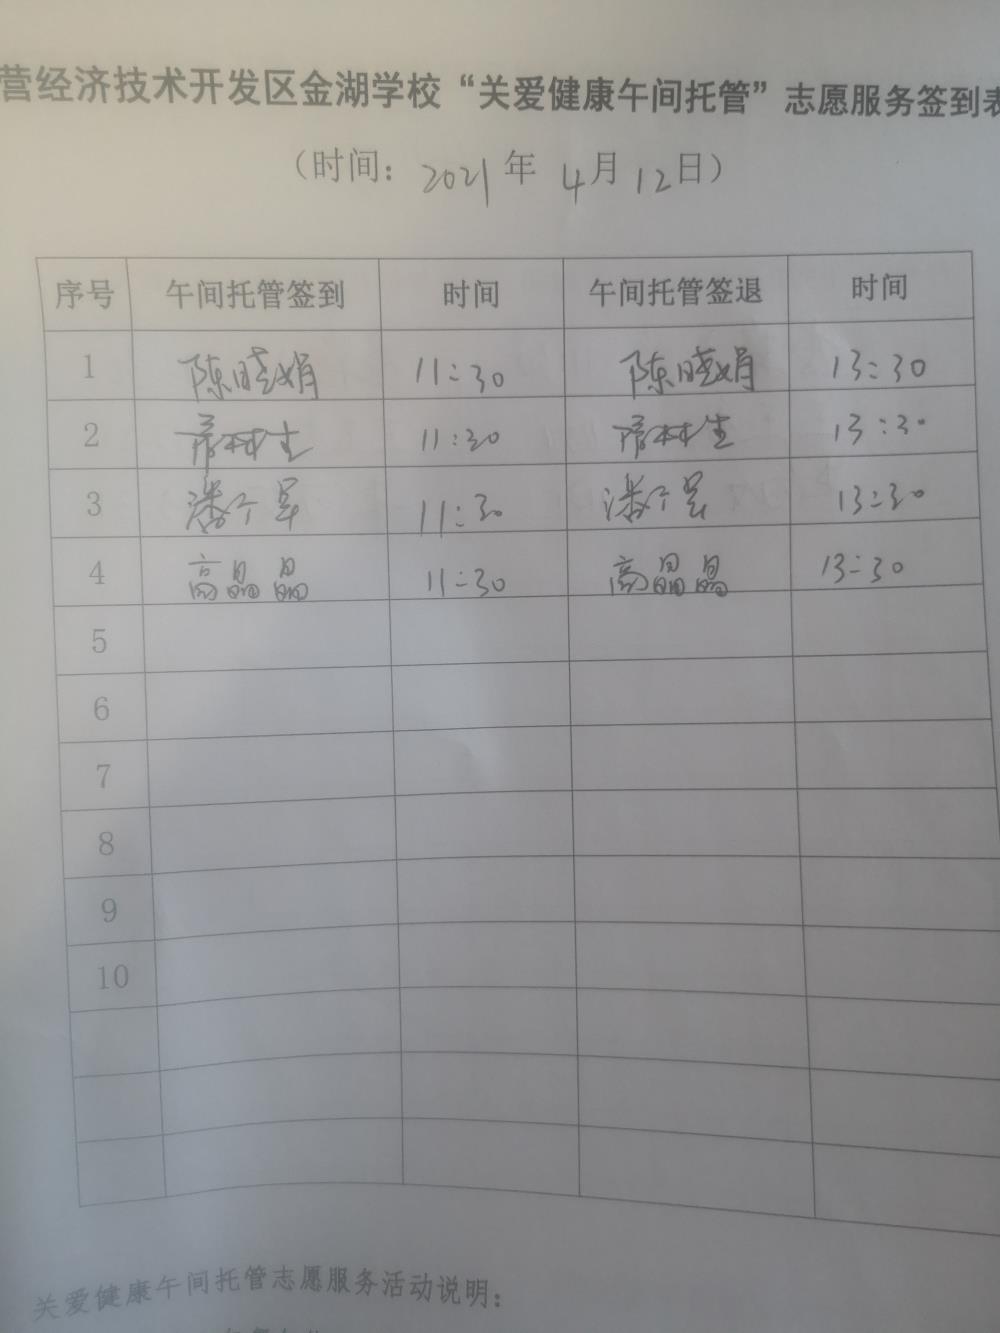 营经济技术开发区金湖学校“关爱健康午间托管”志愿服务签到表
（时间：2021年 4月12日）
序号 午间托管签到 时间 午间托管签退 时间
1 陈晓娟 11:30 陈晓娟 13:30
2 11:30 13:30
3 潘 11:30 潘 13:30
4 高晶晶 11:30 高晶晶 13:30
5
6
7
8
9
10
关爱健康午间托管志愿服务活动说明：